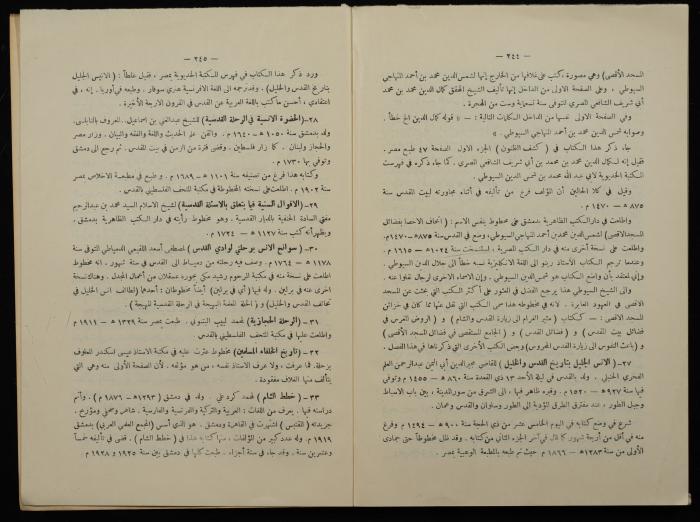 — ٢٤٤ —
المسجد الأقصى) وهي مصورة، كتب على غلافها من الخارج إنها لشمس الدين محمد بن أحمد المنهاجي
السيوطي. وعلى الصفحة الاولى من الداخل إنها تأليف الشيخ المحقق كمال الدين محمد بن محمد
أبي شريف الشافعي المصري المتوفى سنة تسعماية وست من الهجرة.
وفي الصفحة الاولى نفسها من الداخل الكلمات التالية: — « قوله كمال الدين الخ خطأ.
وصوابه شمس الدين محمد بن أحمد المنهاجي السيوطي. »
جاء ذكر هذا الكتاب في ( كشف الظنون ) الجزء الاول الصفحة ٤٧ طبع مصر.
فقيل إنه لكمال الدين محمد بن محمد بن أبي شريف الشافعي المصري. كما جاء ذكره في فهرست
المكتبة الخديوية لأبي عبد الله محمد بن شمس الدين السيوطي.
وقيل في كلا الحالين أن المؤلف فرغ من تأليفه في أثناء مجاورته لبيت القدس سنة
٨٧٥ هـ — ١٤٧٠ م.
واطلعت في دار الكتب الظاهرية بدمشق على مخطوط بنفس الاسم: ( اتحاف الاخصا بفضائل
المسجد الاقصى) لشمس الدين محمد بن أحمد المنهاجي السيوطي، وضع في القدس سنة ٨٧٥هـ — ١٤٧٠م.
واطلعت على نسخة أخرى منه في دار الكتب المصرية، استنسخت سنة ١٠٢٤هـ — ١٦١٥ م.
وعندما ترجم الكتاب الأستاذ رينو لي اللغة الانكليزية نسبه خطأ الى جلال الدين السيوطي.
وإني لمعتقد بأن واضع الكتاب هو شمس الدين السيوطي. وإن الاسماء الاخرى لرجال نقلوا عنه.
والى الشيخ السيوطي هذا يرجع الفضل في العثور على أكثر الكتب التي تبحث عن المسجد
الاقصى في العهود الغابرة. لانه في مخطوطه هذا سمى الكتب التي نقل عنها مما كان في خزائن
المسجد الاقصى: — ككتاب ( مثير الغرام الى زيارة القدس والشام ) و ( الروض المغرس في
فضائل بيت المقدس ) و ( فضائل القدس ) و ( الجامع المستقصى في فضائل المسجد الأقصى )
و ( باعث النفوس الى زيارة القدس المحروس) وبعض الكتب الأخرى التي ذكرناها في هذا الفصل.
٢٧ — الانس الجليل بتاريخ القدس والخليل ) للقاضي مجير الدين أبي اليمن عبد الرحمن العلم
العمري الحنبلي. ولد بالقدس في ليلة الأحد ١٣ ذي القعدة سنة ٨٦٠ هـ — ١٤٥٥ م وتوفي
فيها سنة ٩٢٧هـ — ١٥٢٠ م. وقبره ظاهر فيها، الى الشرق من سور المدينة، بين باب الاسباط
وجبل الطور، عند مفترق الطرق المؤدية الى الطور وسلوان والقدس وعمان.
شرع في وضع كتابه في اليوم الخامس عشر من ذي الحجة سنة ٩٠٠ هـ — ١٤٩٤ م وفرغ
منه في أقل من أربعة شهور كما قال في آخر الجزء الثاني من كتابه. وقد ظل مخطوطا حتى جمادى
الأولى من سنة ١٢٨٣ هـ — ١٨٦٦ م حيث تم طبعه بالمطبعة الوهبية بمصر.
— ٢٤٥ —
ورد ذكر هذا الكتاب في فهرس المكتبة الخديوية بمصر، فقيل غلطاً: ( الانيس الجليل
بتاريخ القدس والخليل). وقد ترجمه الى اللغة الافرنسية هنري سوفار. وطبعه في أوربا. إنه، في
اعتقادي، أحسن ما كتب باللغة العربية عن القدس في القرون الاربعة الأخيرة.
٢٨ — الحضرة الانسية في الرحلة القدسية) للشيخ عبد الغني بن اسماعيل. المعروف بالنابلسي.
ولد بدمشق سنة ١٠٥٠هـ — ١٦٤٠ م. واتقن علم الحديث واللغة والفقه والبيان. وزار مصر
والحجاز ولبنان. كما زار فلسطين. وقضى فترة من الزمن في بيت المقدس. ثم رجع الى دمشق
وتوفي بها ١٧٣٠ م.
وكتابه هذا فرغ من تصنيفه سنة ١١٠١ هـ — ١٦٨٩ م. وطبع في مطبعة الاخلاص بمصر
سنة ١٩٠٢ م. اطلعت على نسخته المخطوطة في مكتبة المتحف الفلسطيني بالقدس.
٢٩ — الاقوال السنية فيما يتعلق بالاسئلة القدسية) لشيخ الاسلام السيد محمد بن عبد الرحيم
مفتي السادة الحنفية بالديار القدسية. وهو مخطوط رأيته في دار الكتب الظاهرية بدمشق.
ويظهر أنه كتب سنة ١١٢٧ هـ — ١٧٢٤ م.
٣٠ — سوانح الانس برحلتي لوادي القدس) لمصطفى أسعد اللقيمي الدمياطي المتوفى سنة
١١٧٨ هـ — ١٧٦٤ م. وصف فيه رحلته من دمياط الى القدس في سنة شهور. انه مخطوط
اطلعت على نسخة منه في مكتبة المرحوم رشيد بكي بحورة عسقلان من أعمال المجدل. وهناك نسخة
اخرى عنه في برلين. وله فيها ( أي في برلين ) أيضاً مخطوطان: أحدهما (لطائف انس الجليل في
تحائف القدس والخليل) و ( الحلة المعلمة البهيجة في الرحلة القدسية المهيجة ).
٣١ — (الرحلة الحجازية) لمحمد لبيب البتنوني. طبعت بمصر سنة ١٣٢٩هـ — ١٩١١ م
واطلعت عليها في مكتبة المتحف الفلسطيني بالقدس
٣٢ — تاريخ الخلفاء المسلمين) مخطوط عثرت عليه في مكتبة الاستاذ عيسى اسكندر المعلوف
بزحلة. فما عرفت، ولا عرف الاستاذ نفسه، من هو مؤلفه. لأن الصفحة الأولى منه وهي التي
يتألف منها الغلاف مفقودة.
٣٣ — خطط الشام) لمحمد كرد علي. ولد في دمشق (١٢٩٣هـ — ١٨٧٦ م). وأتم
دراسته فيها. يعرف من اللغات: العربية والتركية والفرنسية والفارسية. شاعر وصحفي ومؤرخ.
جريدته ( المقتبس ) اشتهرت في القاهرة ودمشق. هو الذي أسس (المجمع العلمي العربي) بدمشق
١٩١٩ م. وله عدد كبير من المؤلفات، منها كتابه هذا في ( خطط الشام ). قضى في تأليفه خمساً
وعشرين سنة. وقد جاء في ستة أجزاء. طبعت كلها في دمشق بين سنة ١٩٢٥ و ١٩٢٨ م